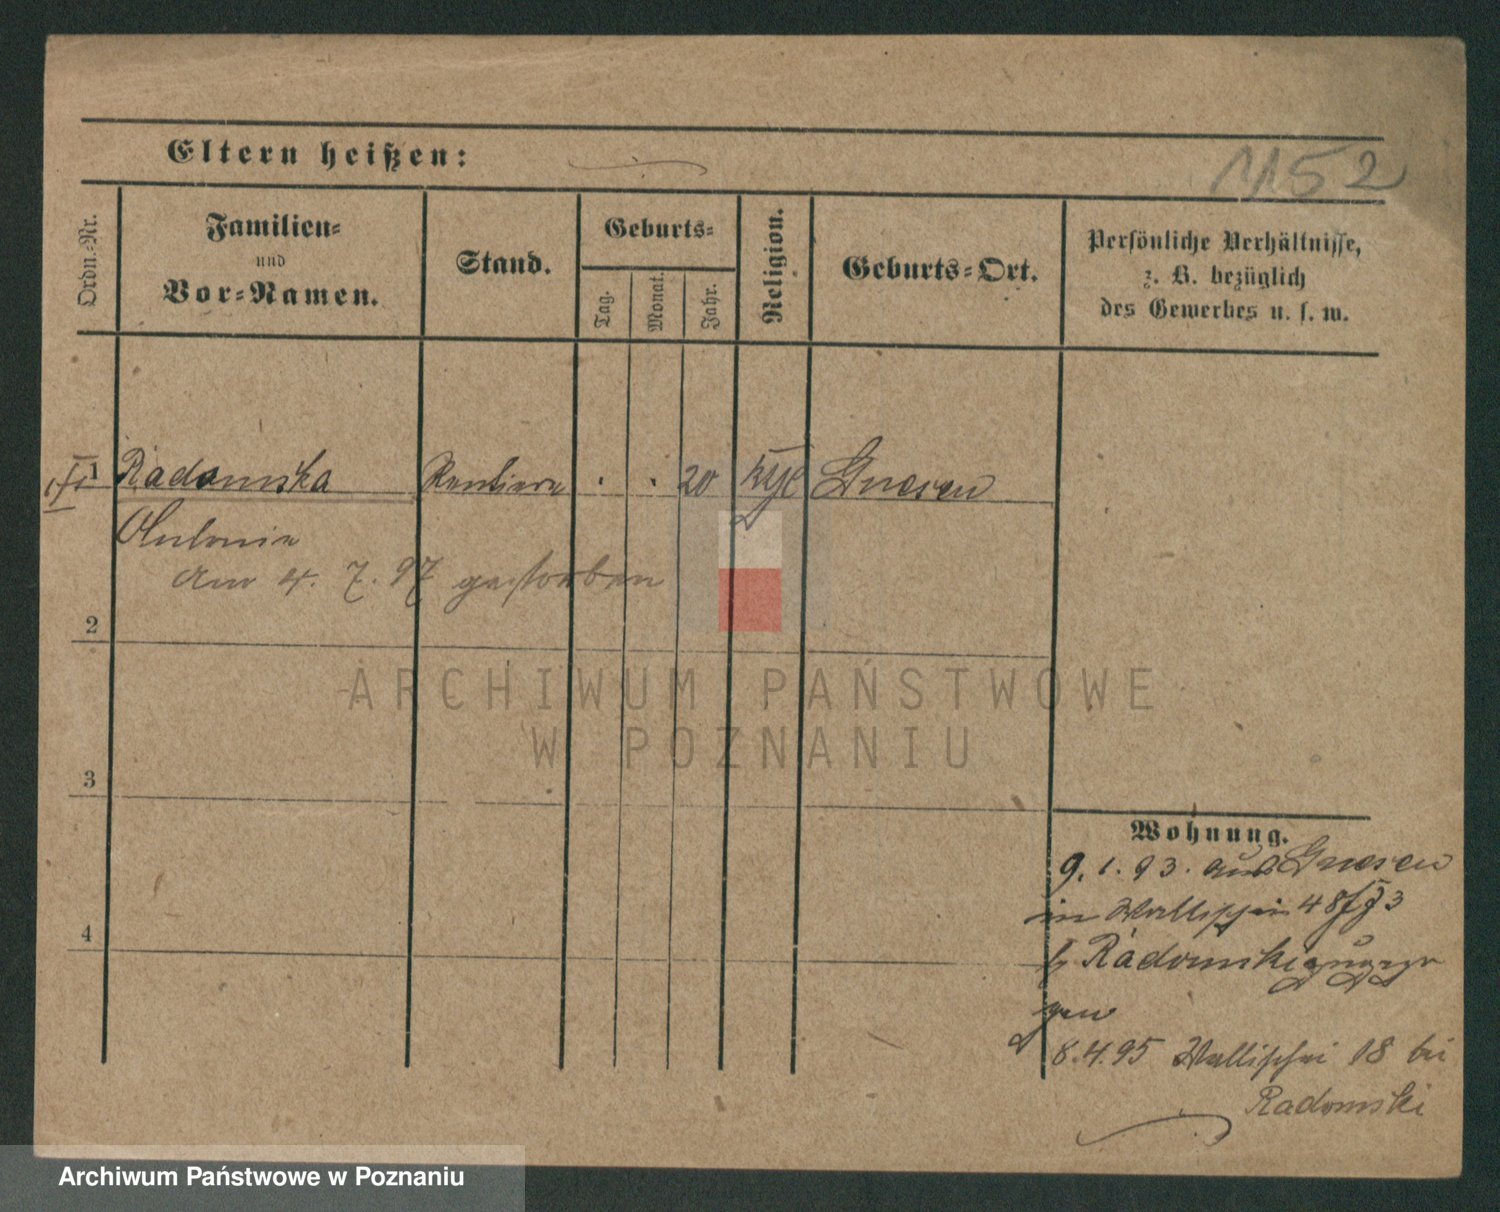 Eltern heißen:
1152
Ordn.-Nr.
Familien-
und
Vor-Namen.
Stand.
Geburts-
Tag.
Monat.
Jahr.
Religion.
Geburts-Ort.
Persönliche Verhältnisse,
z. B. bezüglich
des Gewerbes u. s. w.
1 Radomska Rentiere . . 20 Gnesen
Antonie
am 4. 7. 97 gestorben
2
3
4
Wohnung.
9. 1. 93. aus Gnesen
in Wallischei 48
Radomski zugezo
gen
8.4.95 Wallischei 18 bei
Radomski
ARCHIWUM PAŃSTWOWE
W POZNANIU
Archiwum Państwowe w Poznaniu